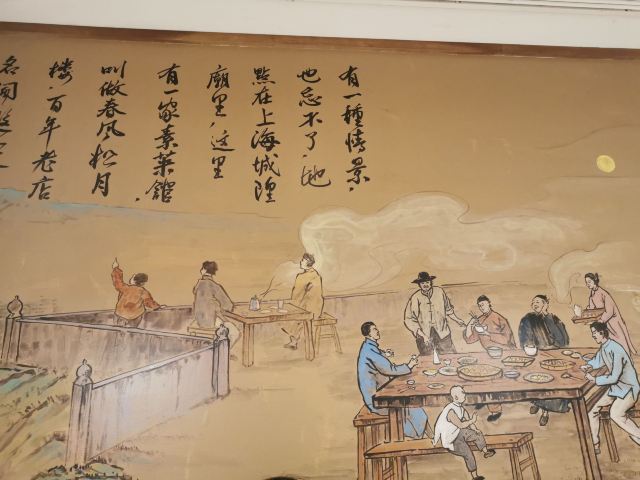 有一種情景，
也忘不了，地
點在上海城隍
廟里，这里
有一家素菜館，
叫做春风松月
楼，百年老店
名闻